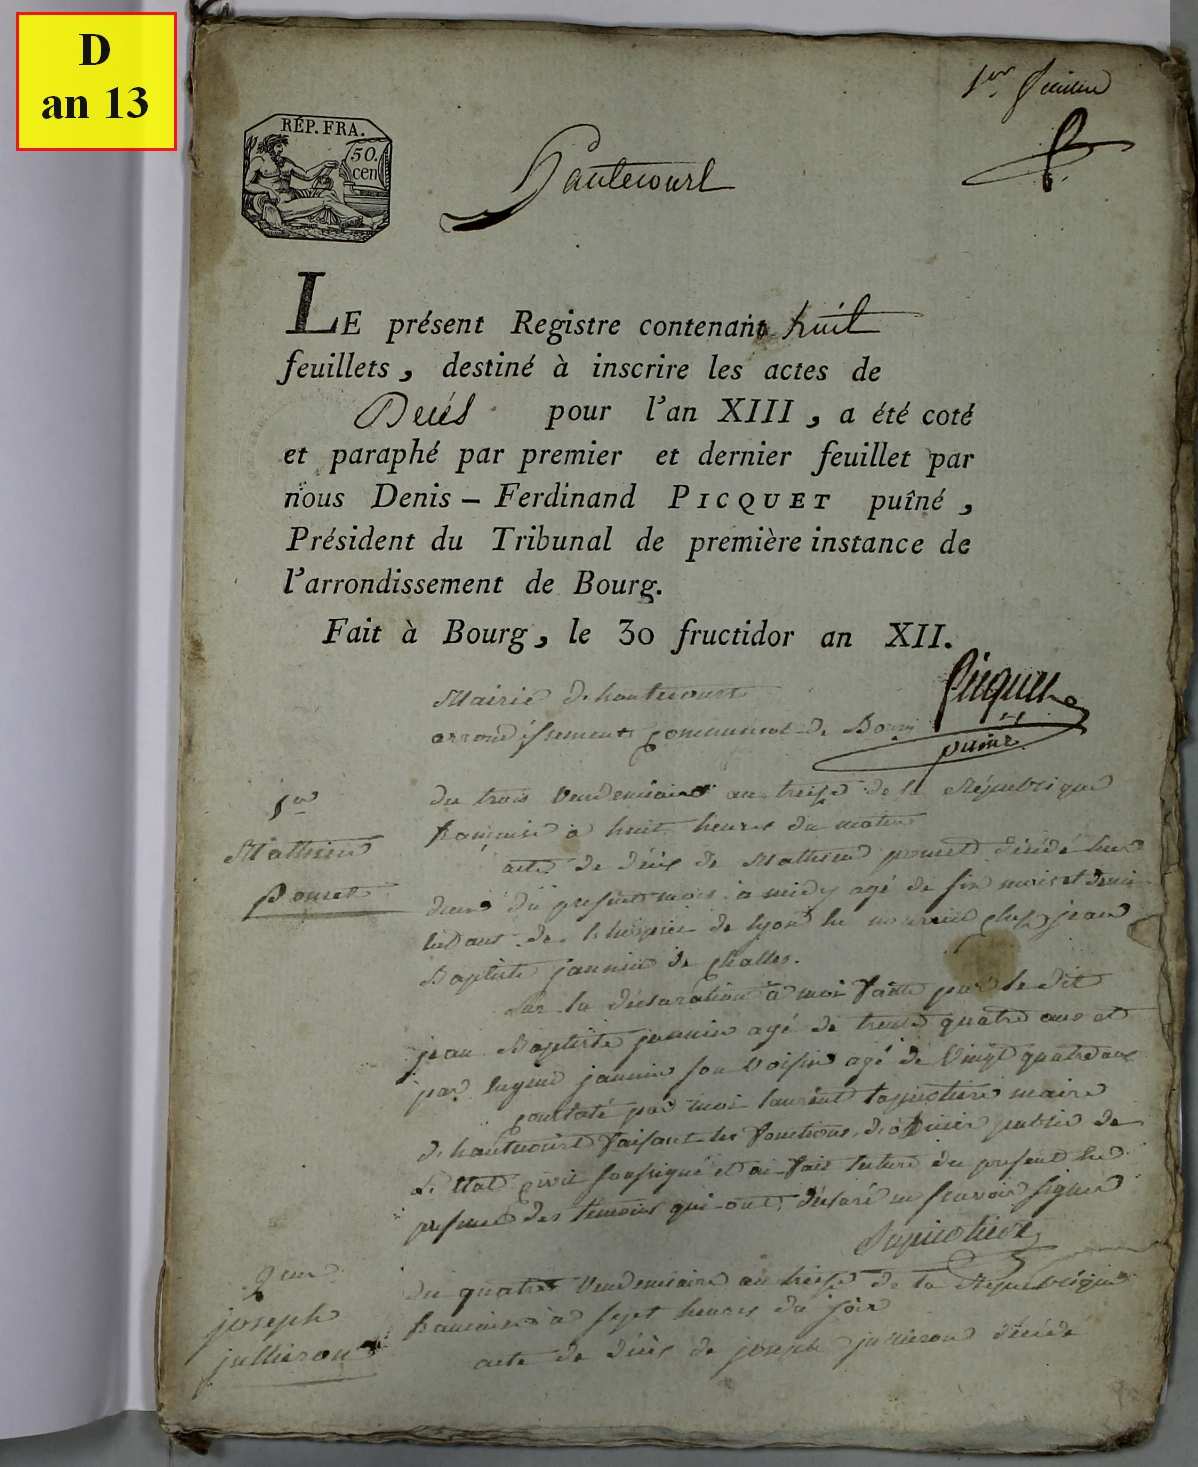 D
an 13
1er feuillet
RÉP. FRA.
50.
cen
hautecourt
LE présent Registre contenant huit
feuillets, destiné à inscrire les actes de
Décés pour l'an XIII, a été coté
et paraphé par premier et dernier feuillet par
nous Denis - Ferdinand PICQUET puîné,
Président du Tribunal de première instance de
l'arrondissement de Bourg.
Fait à Bourg, le 30 fructidor an XII.
Picquet
puiné
Mairie de hautecourt
arrondissement communal de Bourg
1er
Mathieu
poncet
du trois Vendemiaire an treise de la République
française à huit heures du matin
acte de décès de Mathieu poncet décédé hier
deux du present mois à midy agé de six mois et demi
de l'hospice de lyon en nourrice chez jean
Baptiste jannin de Challes.
sur la déclaration à moi faitte par le dit
jean Baptiste jannin agé de trente quatre ans et
par jannin son voisin agé de vingt quatre ans
constaté par moi laurent maire
de hautecourt faisant les fonctions d'officier public de
l'etat civil soussigné et ai fait lecture du present en
presence des temoins qui ont déclaré ne scavoir signer
2eme
joseph
jullieron
du quatre Vendemiaire an treise de la République
francaise à sept heures du soir
acte de décès de joseph jullieron décédé